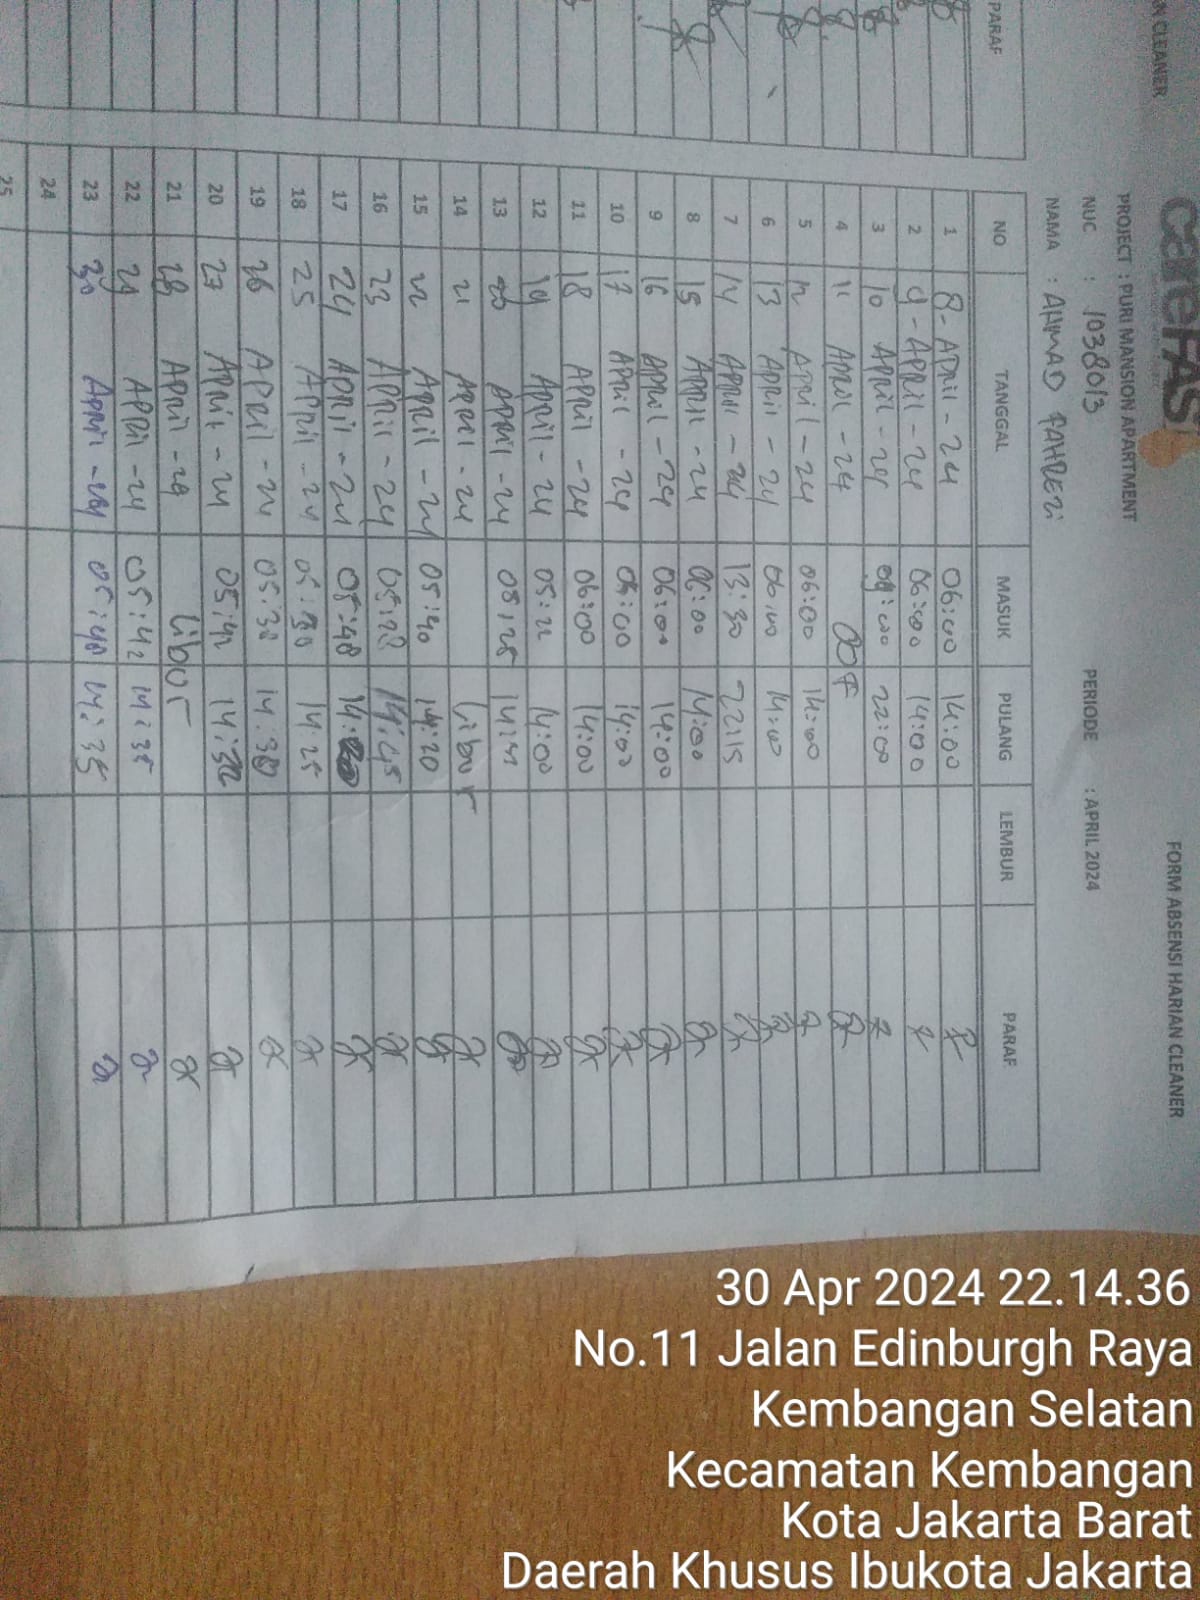 N CLEANER
PARAF
careFAST
FORM ABSENSI HARIAN CLEANER
PROJECT : PURI MANSION APARTMENT
NUC : 1038013
PERIODE : APRIL 2024
NAMA : AHMAD FAHREZI
NO TANGGAL MASUK PULANG LEMBUR PARAF
1 8 - APril - 24 06:00 14:00
2 9 - APril - 24 06:00 14:00
3 10 - APril - 24 22:00
4 11 APril - 24 OFF
5 12 APril - 24 06:00 14:00
6 13 APril - 24 06:00 14:00
7 14 APRIL - 24 13:30 22:15
8 15 APRIL - 24 06:00 14:00
9 16 APRIL - 24 06:00 14:00
10 17 APRIL - 24 06:00 14:00
11 18 APRIL - 24 06:00 14:00
12 19 APRIL - 24 05:22 14:00
13 20 APRIL - 24 05:25
14 21 APRIL - 24 libur
15 22 APRIL - 24 05:40 14:20
16 23 APRIL - 24 05:28 14:45
17 24 APRIL - 24 05:48 14:
18 25 APRIL - 24 14:25
19 26 APRIL - 24 05:38 14:30
20 27 APRIL - 24 05:42 14:32
21 28 APRIL - 24 libur
22 29 APRIL - 24 05:42 14:35
23 30 APRIL - 24 05:40 14:35
24
25
30 Apr 2024 22.14.36
No.11 Jalan Edinburgh Raya
Kembangan Selatan
Kecamatan Kembangan
Kota Jakarta Barat
Daerah Khusus Ibukota Jakarta